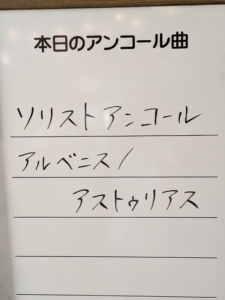 本日のアンコール曲
ソリストアンコール
アルベニス/
アストゥリアス